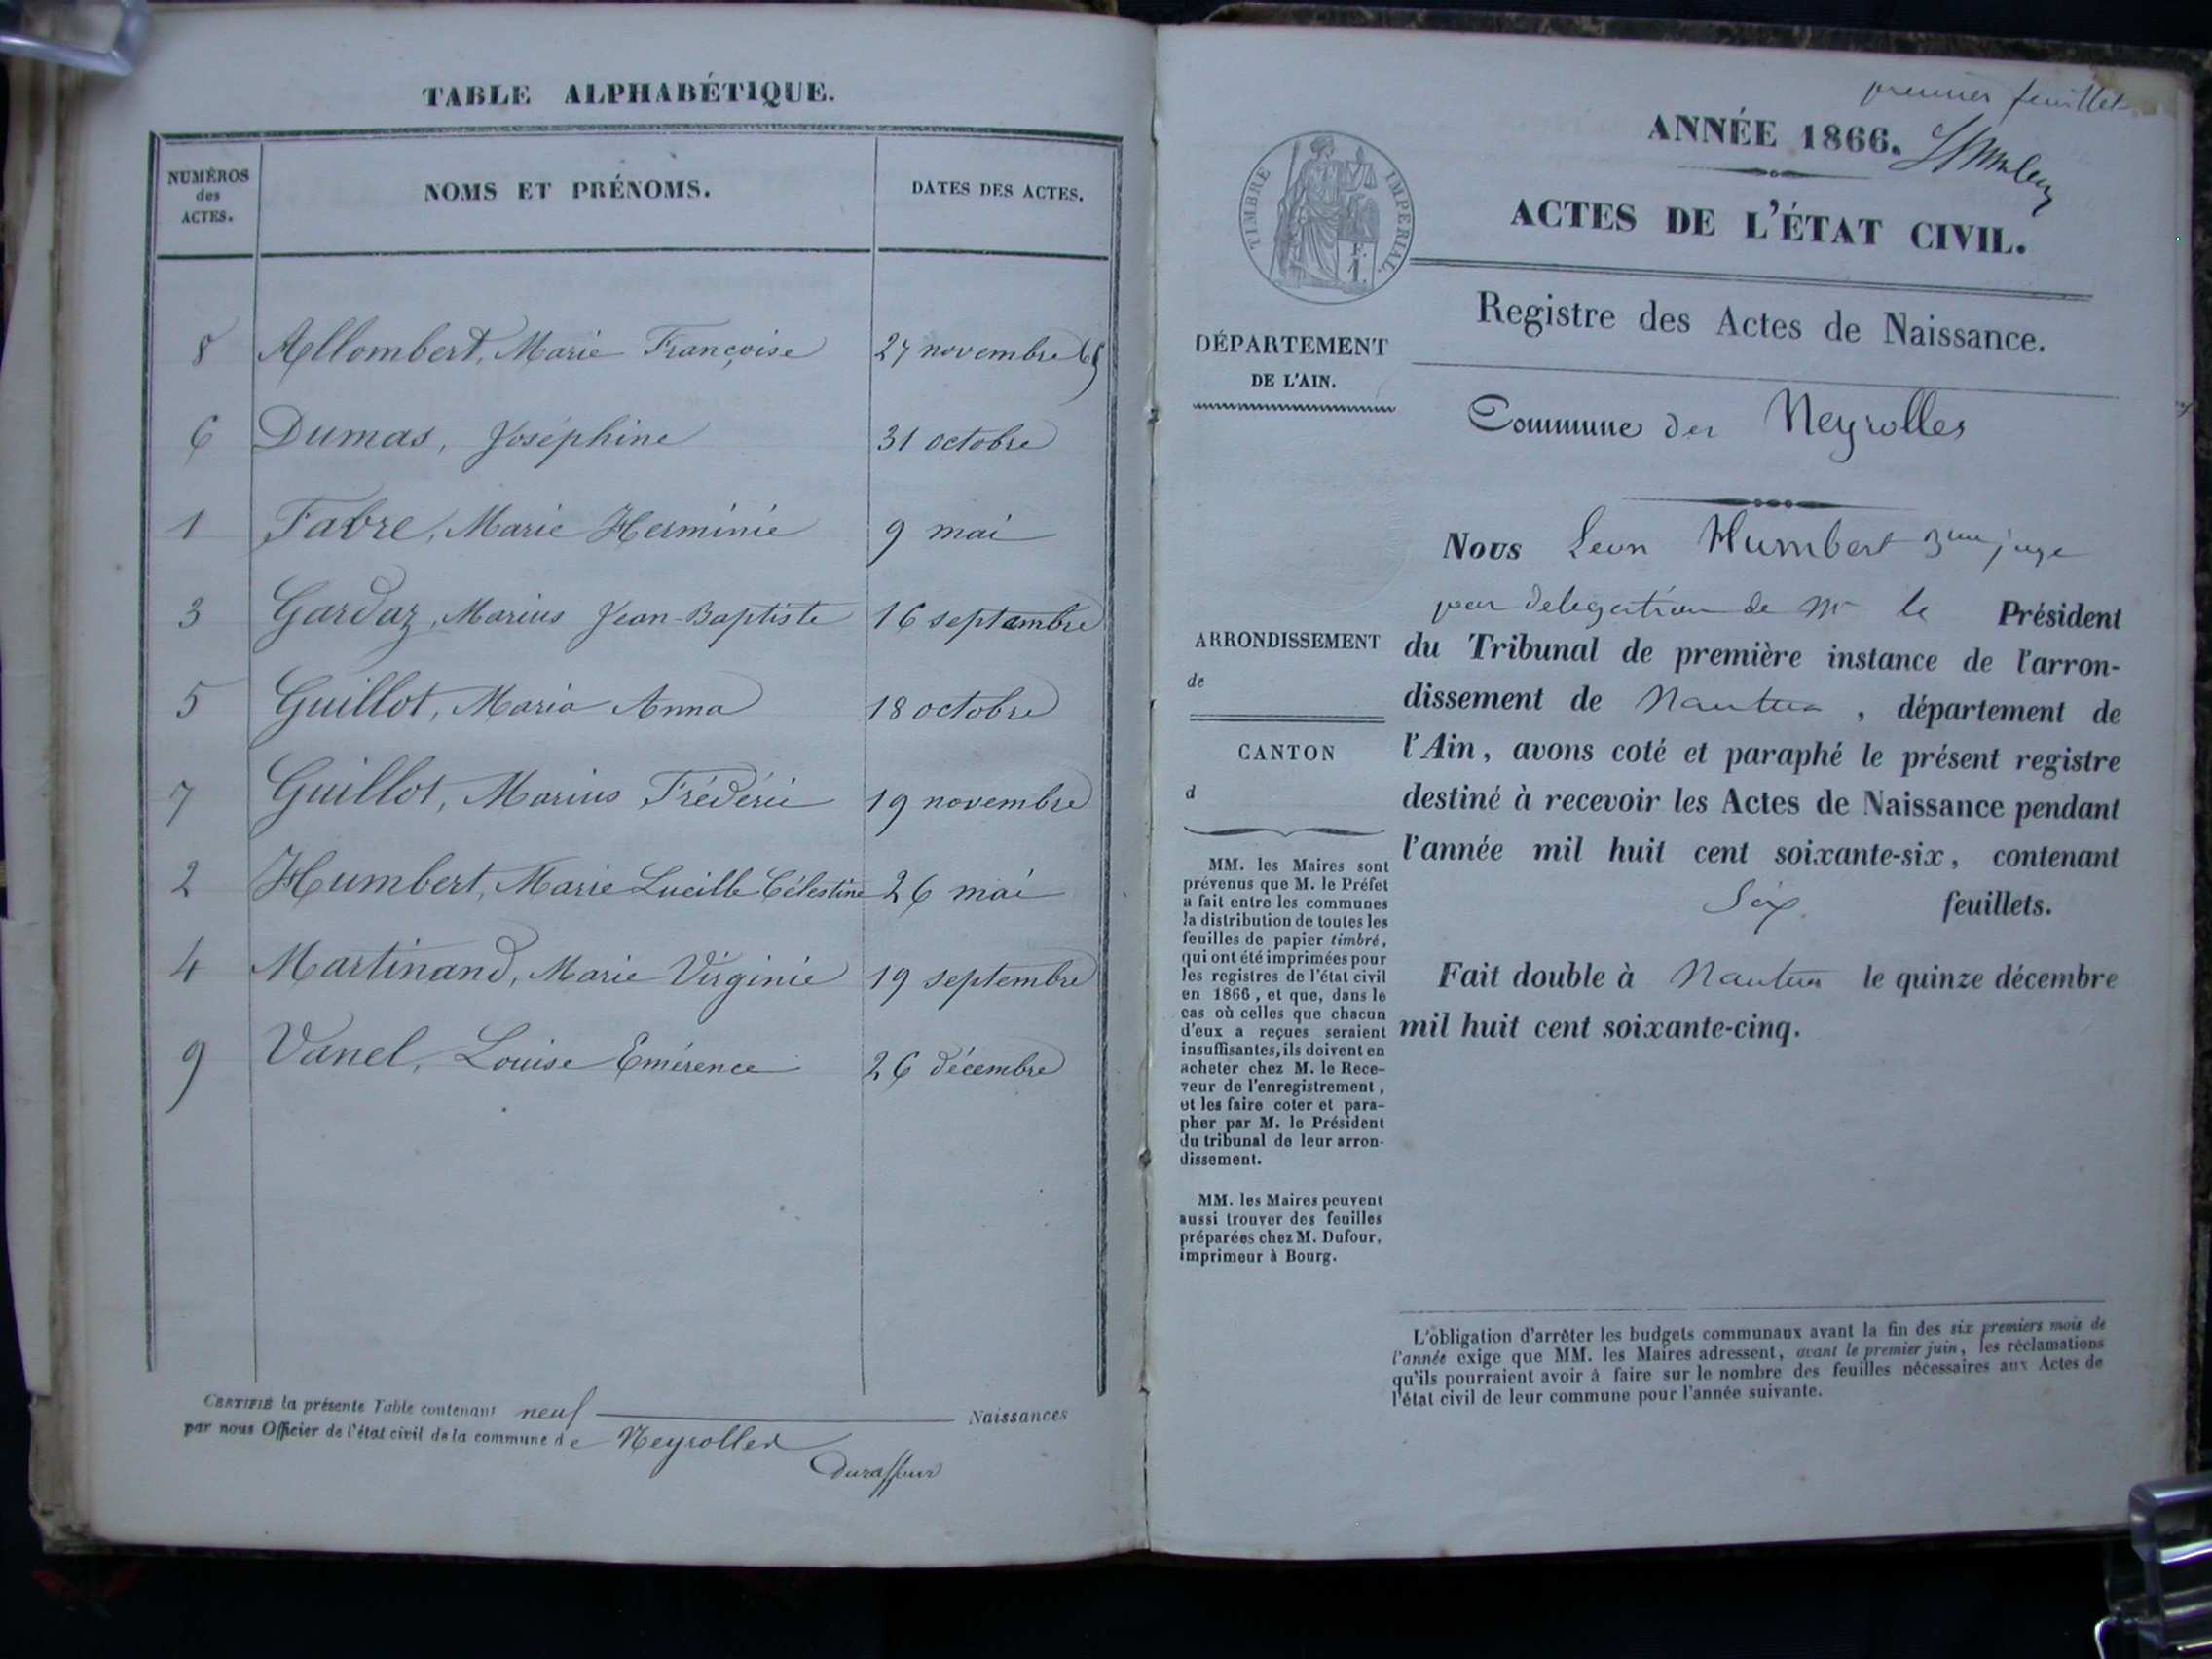 TABLE ALPHABÉTIQUE.
NUMÉROS
des
ACTES.
NOMS ET PRÉNOMS.
DATES DES ACTES.
8 Allombert, Marie Françoise 27 novembre 65
6 Dumas, Joséphine 31 octobre
1 Fabre, Marie Herminie 9 mai
3 Gardaz, Marius Jean-Baptiste 16 septembre
5 Guillot, Maria Anna 18 octobre
7 Guillot, Marius Frédéric 19 novembre
2 Humbert, Marie Lucille Célestine 26 mai
4 Martinand, Marie Virginie 19 septembre
9 Vanel, Louise Emérence 26 décembre
CERTIFIÉ la présente Table contenant neuf Naissances
par nous Officier de l'état civil de la commune de Neyrolles
Duraffour
premier feuillet
ANNÉE 1866.
ACTES DE L'ÉTAT CIVIL.
TIMBRE IMPERIAL.
F.
1.
Registre des Actes de Naissance.
DÉPARTEMENT
DE L'AIN.
Commune des Neyrolles
Nous Leon Humbert juge
par delegation de Mr le Président
du Tribunal de première instance de l'arron-
dissement de Nantua, département de
l'Ain, avons coté et paraphé le présent registre
destiné à recevoir les Actes de Naissance pendant
l'année mil huit cent soixante-six, contenant
Six feuillets.
Fait double à Nantua le quinze décembre
mil huit cent soixante-cinq.
ARRONDISSEMENT
de
CANTON
d
MM. les Maires sont
prévenus que M. le Préfet
a fait entre les communes
la distribution de toutes les
feuilles de papier timbré,
qui ont été imprimées pour
les registres de l'état civil
en 1866, et que, dans le
cas où celles que chacun
d'eux a reçues seraient
insuffisantes, ils doivent en
acheter chez M. le Rece-
veur de l'enregistrement,
et les faire coter et para-
pher par M. le Président
du tribunal de leur arron-
dissement.
MM. les Maires peuvent
aussi trouver des feuilles
préparées chez M. Dufour,
imprimeur à Bourg.
L'obligation d'arrêter les budgets communaux avant la fin des six premiers mois de
l'année exige que MM. les Maires adressent, avant le premier juin, les réclamations
qu'ils pourraient avoir à faire sur le nombre des feuilles nécessaires aux Actes de
l'état civil de leur commune pour l'année suivante.